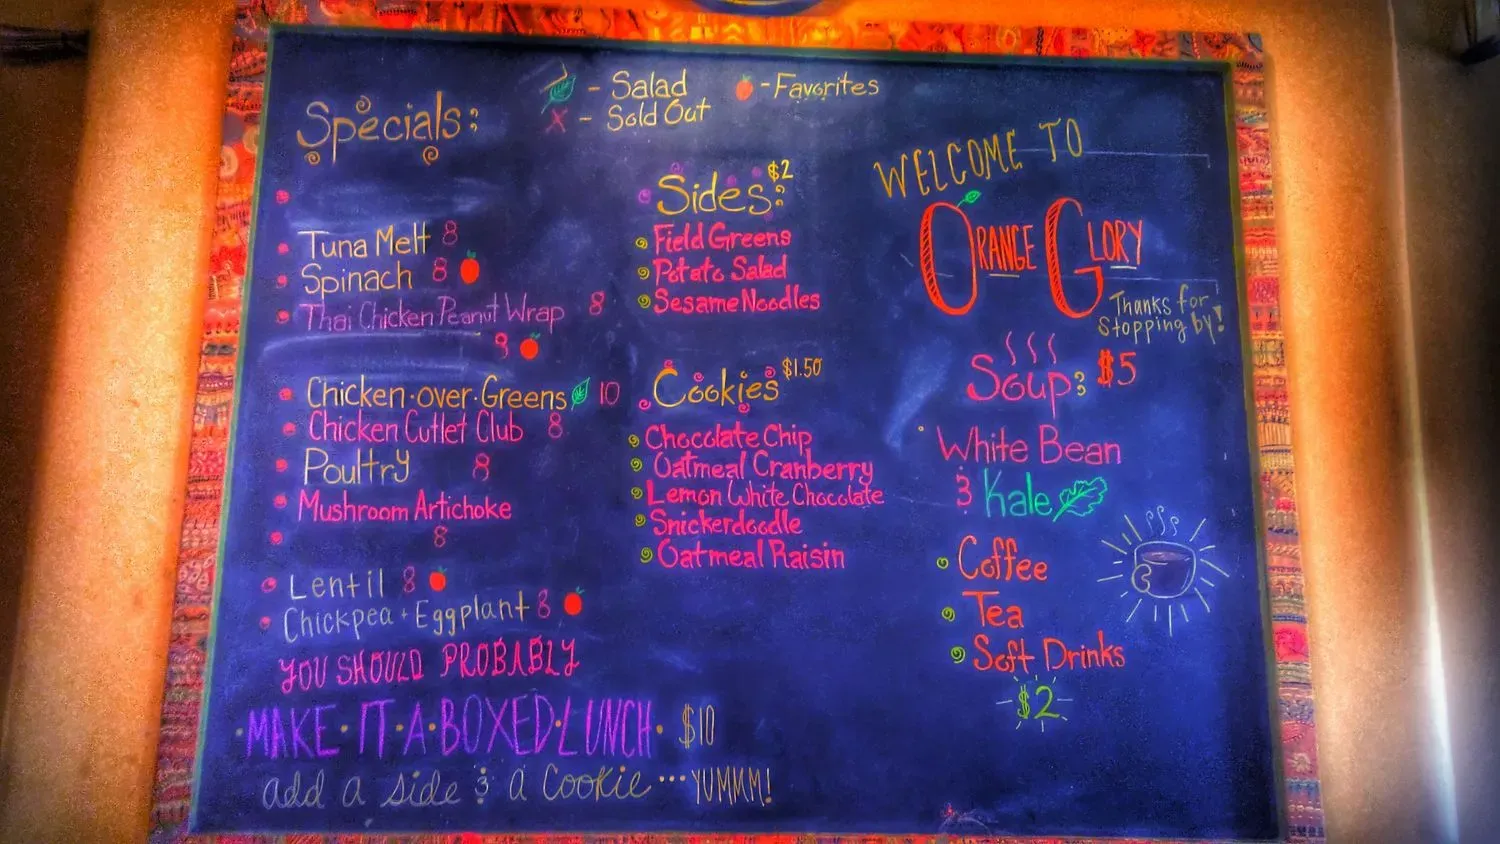 Specials:
- Salad
x - Sold Out
- Favorites
Tuna Melt 8
Spinach 8
Thai Chicken Peanut Wrap 8
8
Chicken·over·Greens 10
Chicken Cutlet Club 8
Poultry 8
Mushroom Artichoke
8
Lentil 8
Chickpea + Eggplant 8
YOU SHOULD PROBABLY
·MAKE·IT·A·BOXED·LUNCH· $10
add a side & a Cookie ···YUMMM!
Sides: $2
Field Greens
Potato Salad
Sesame Noodles
Cookies $1.50
Chocolate Chip
Oatmeal Cranberry
Lemon White Chocolate
Snickerdoodle
Oatmeal Raisin
WELCOME TO
ORANGE GLORY
Thanks for
stopping by!
Soup: $5
White Bean
& Kale
Coffee
Tea
Soft Drinks
- $2 -